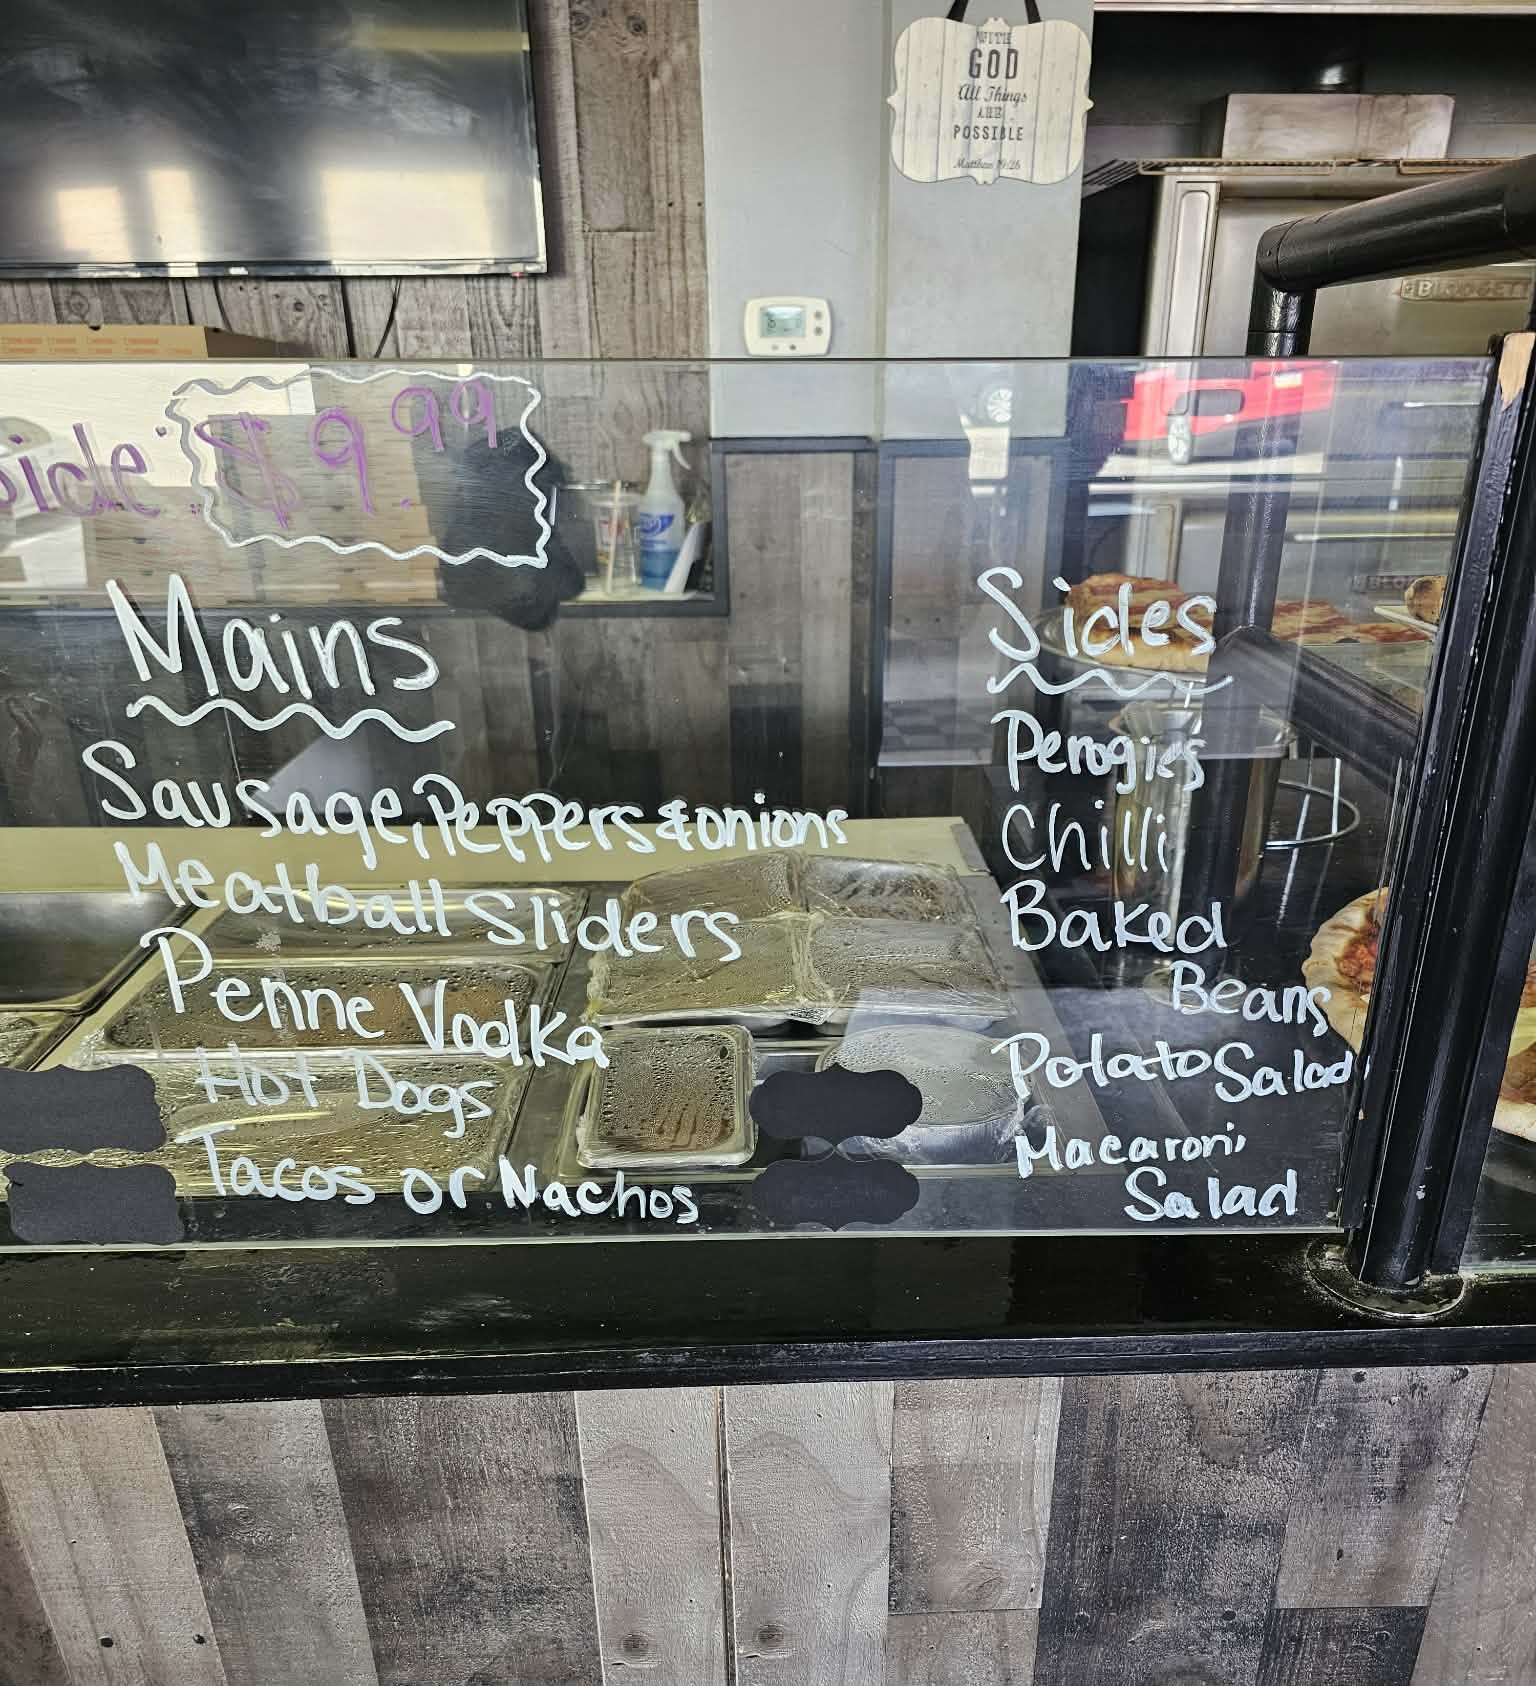 WITH
GOD
All Things
ARE
POSSIBLE
Matthew 19:26
BLODGETT
side: $9.99
Mains
Sausage, Peppers & onions
Meatball Sliders
Penne Vodka
Hot Dogs
Tacos or Nachos
Sides
Perogies
Chilli
Baked
Beans
Potato Salad
Macaroni
Salad